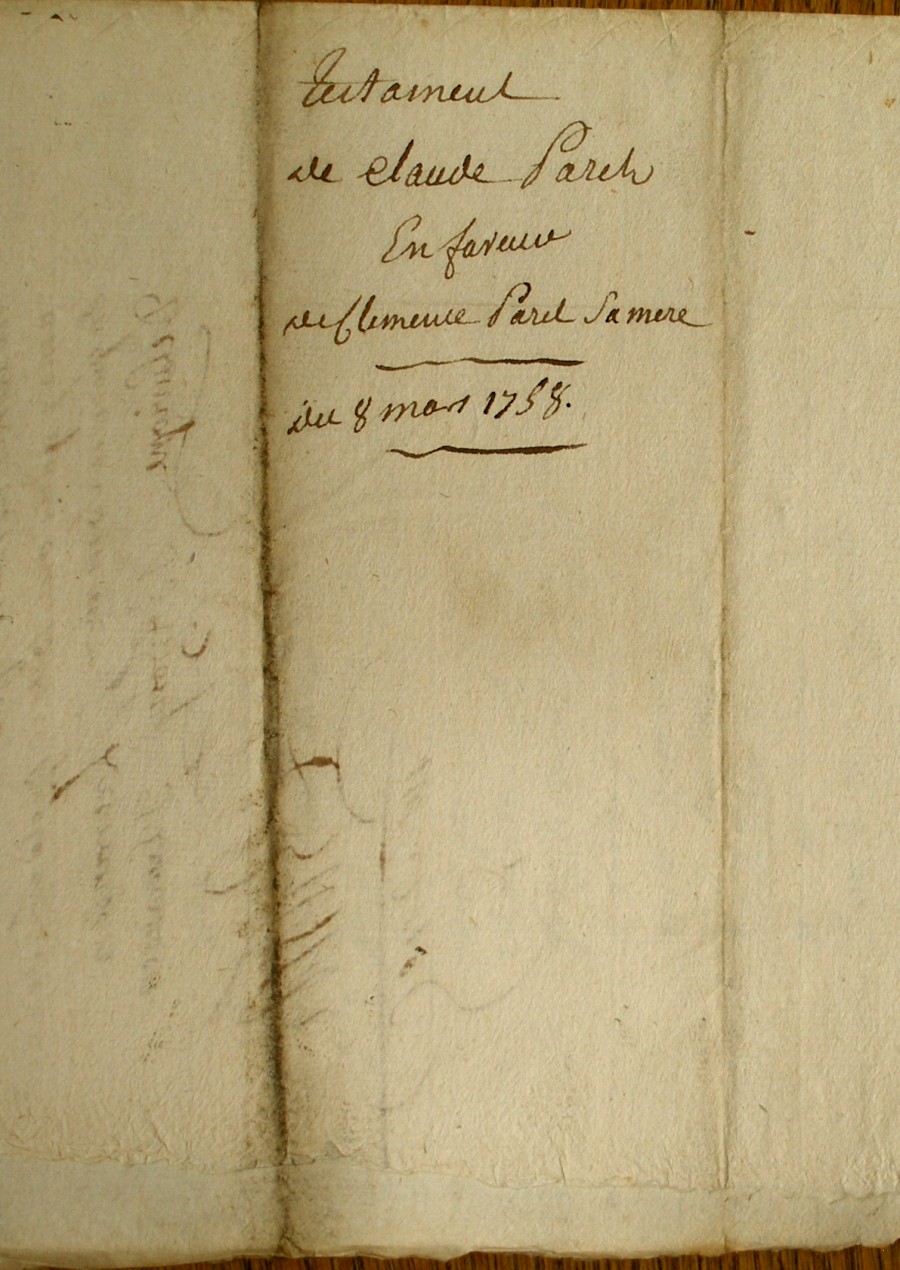 Testament
de Claude Paret
En faveur
de Clemence Paret Sa mere
du 8 mars 1758.